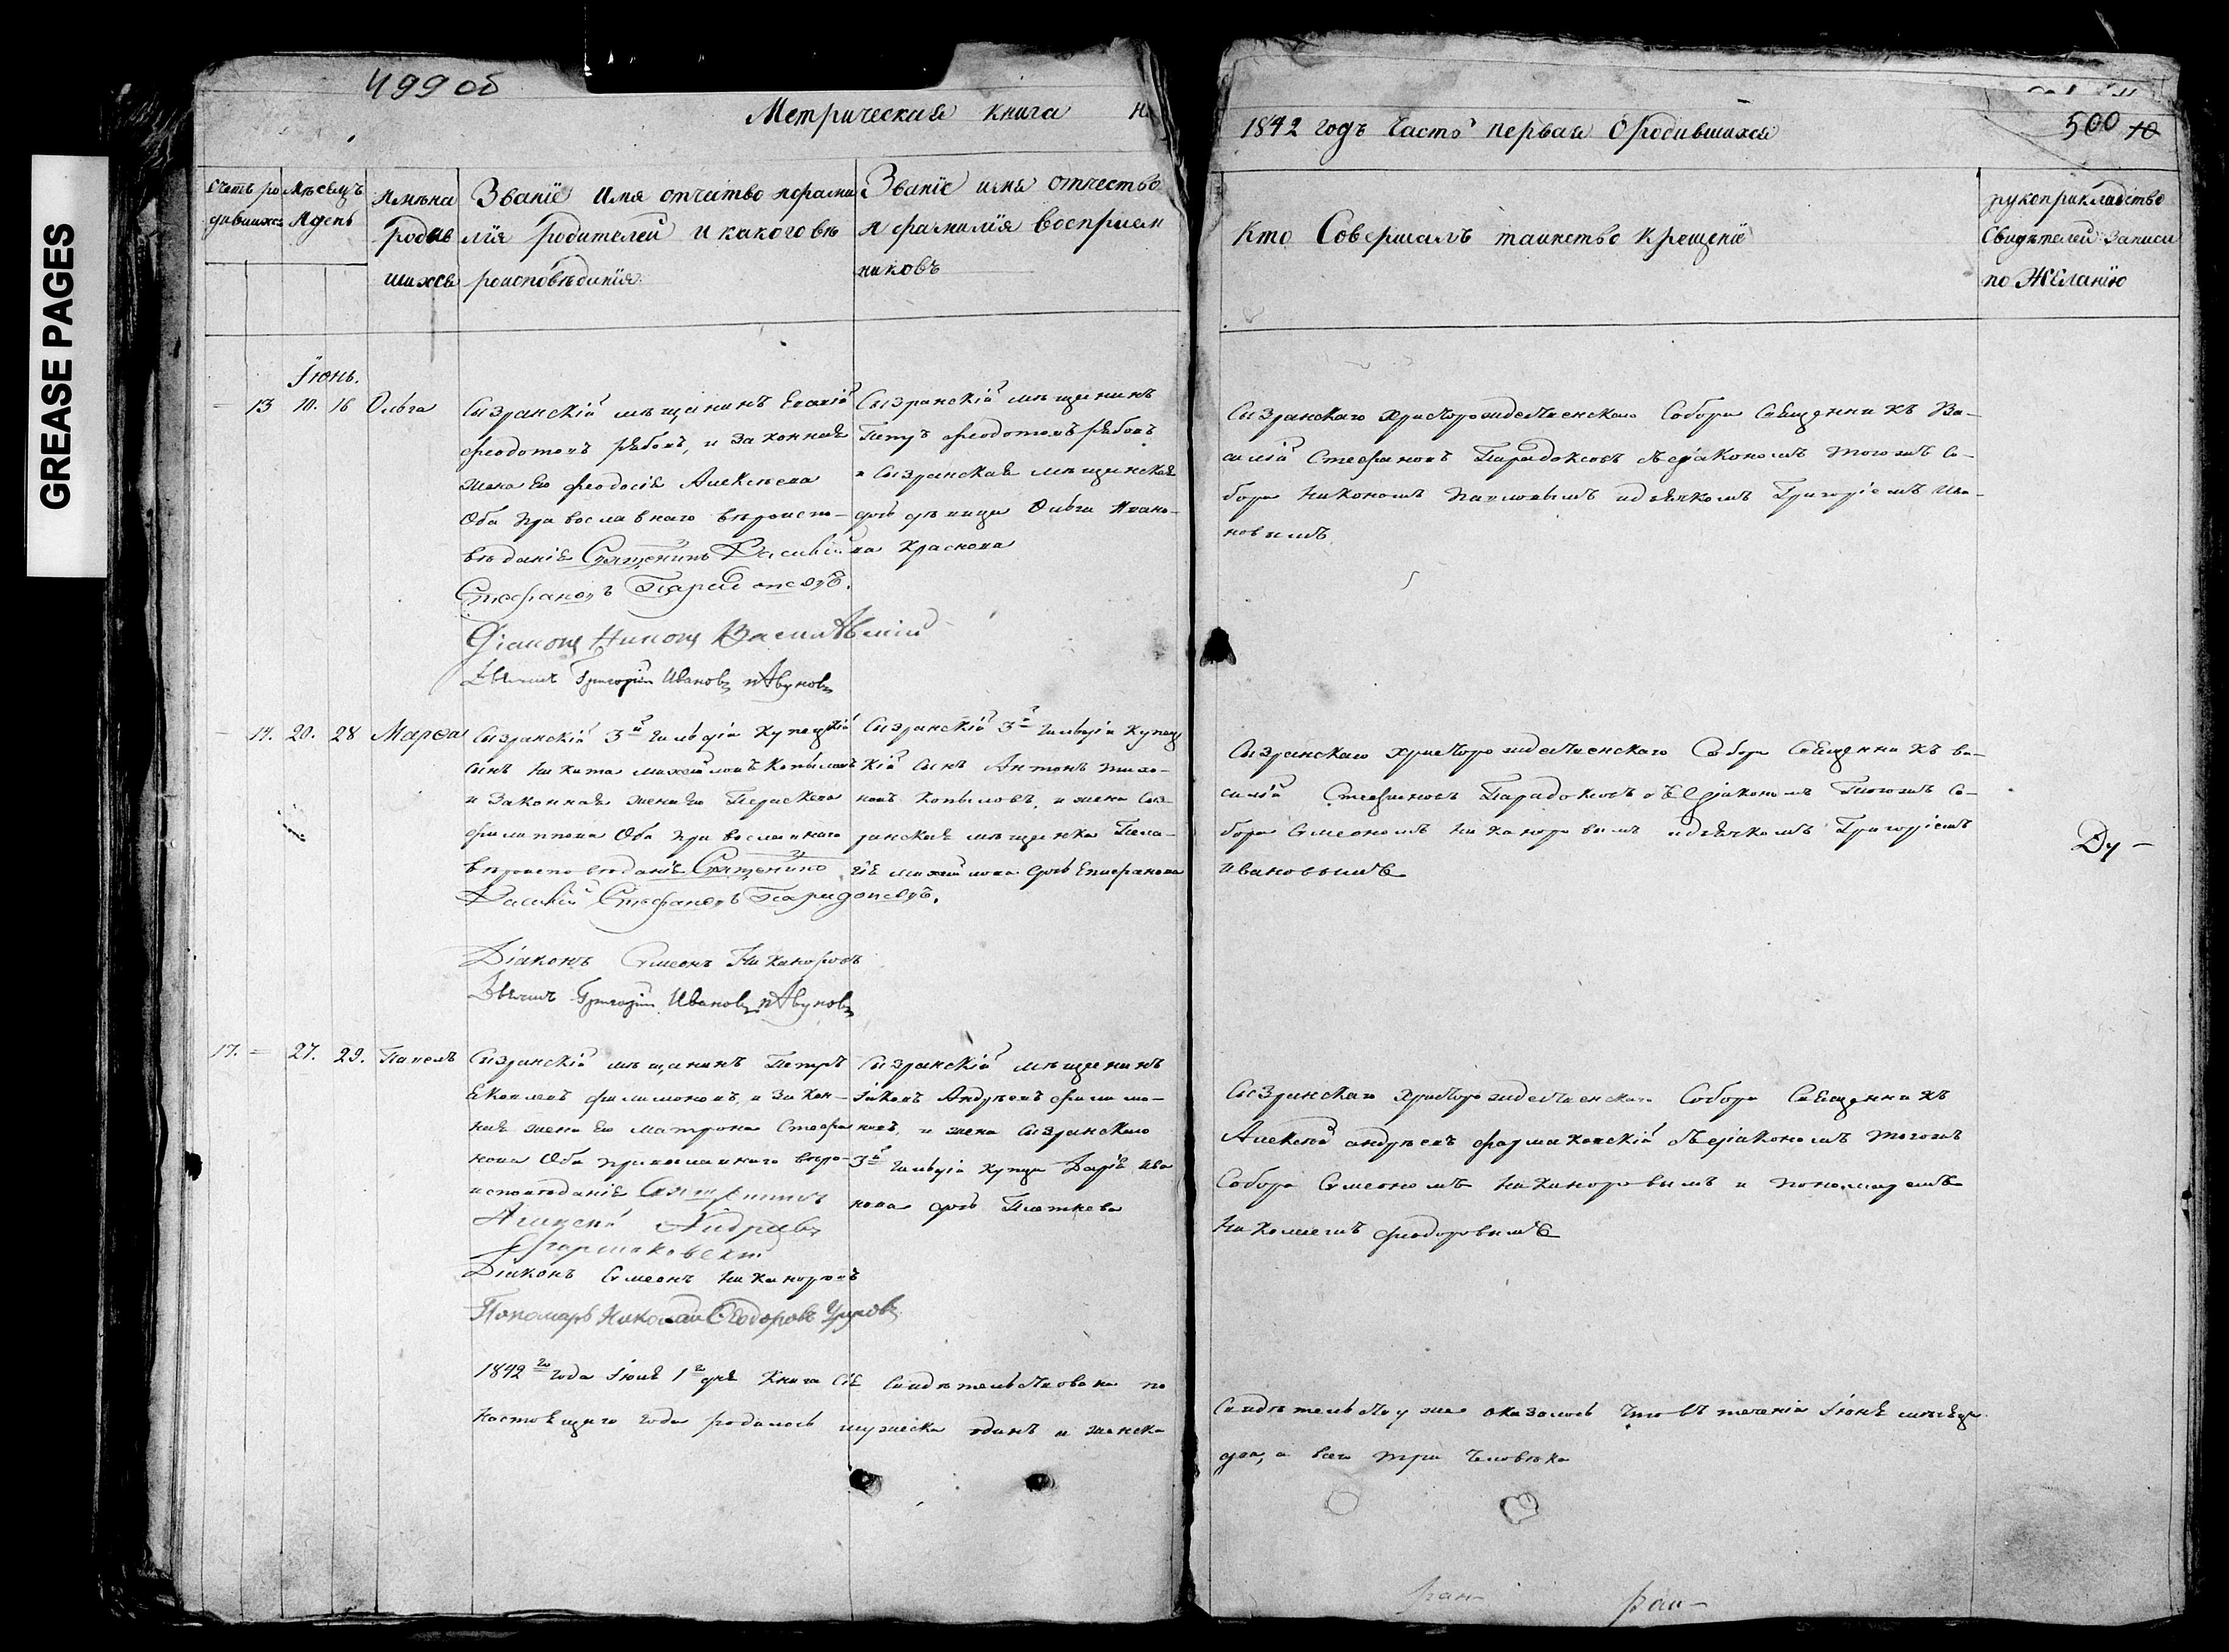 GREASE PAGES
499 об
Метрическая книга на
1842 годъ Часть первая О родившихся
500 10
Счетъ ро
дившихся
Мѣсяцъ
и день
Имѣна
родив
шихся
Званїе Имя отчество и фами
лїя родителей и какого вѣ
роисповѣданїя
Званїе имя отчество
и фамилїя восприем
никовъ
Кто Совершалъ таинство крещенїя
рукоприкладство
Свидѣтелей Записи
по Желанїю
Іюнь.
13 10. 16 Ольга
Сызранскій мѣщанинъ
Феодотовъ Рябовъ, и законная
жена его Феодосія Алексѣева
Оба православнаго вѣроиспо-
вѣданія Священникъ Василій
Стефановъ Парадоксовъ.
Діаконъ Никонъ
Григорій Ивановъ
Сызранскій мѣщанинъ
Петръ Феодотовъ Рябовъ
и Сызранская мѣщанская
дочь дѣвица Ольга Ивано-
ва Краснова
Сызранскаго Христорождественскаго Собора Священникъ Ва-
силій Стефановъ Парадоксовъ съ діакономъ тогожъ Со-
бора Никономъ Павловымъ и дьячкомъ Григоріемъ Ива-
новымъ
14. 20. 28 Марѳа
Сызранскій 3й гильдіи купецкій
сынъ Никита Михайловъ Копыловъ
и законная жена его Параскева
Филиппова Оба православнаго
вѣроисповѣданія Священникъ
Василій Стефановъ Парадоксовъ.
Діаконъ Симеонъ Никаноровъ
Григорій Ивановъ
Сызранскій 3й гильдіи купец
кій сынъ Антонъ Тихо-
новъ Копыловъ, и жена Сыз-
ранская мѣщанка Пела-
гія Михайлова дочь Епифанова
Сызранскаго Христорождественскаго Собора Священникъ Ва-
силій Стефановъ Парадоксовъ съ діакономъ Тогожъ Со-
бора Симеономъ Никаноровымъ и дьячкомъ Григоріемъ
Ивановымъ
Ду-
17. 27. 29. Павелъ
Сызранскій мѣщанинъ Петръ
Яковлевъ Филимоновъ, и закон-
ная жена его Матрона Стефа
нова Оба православнаго вѣро-
исповѣданія Священникъ
Алексѣй Андреевъ
Фармаковскій
Діаконъ Симеонъ Никаноровъ
Пономарь Николай Ѳеодоровъ
Сызранскій мѣщанинъ
Іаковъ Андреевъ Филимо-
новъ, и жена Сызранскаго
3й гильдіи купца Дарія Ива
нова дочь
Сызранскаго Христорождественскаго Собора Священникъ
Алексѣй Андреевъ Фармаковскій съ діакономъ тогожъ
Собора Симеономъ Никаноровымъ и пономаремъ
Николаемъ Феодоровымъ
1842го года Іюля 1го дня Книга сія свидѣтельствована по
Свидѣтельству же оказалось Что въ теченіи Іюня мѣсяца
настоящаго года родилось мужеска одинъ и женска
два, а всего три Человѣка